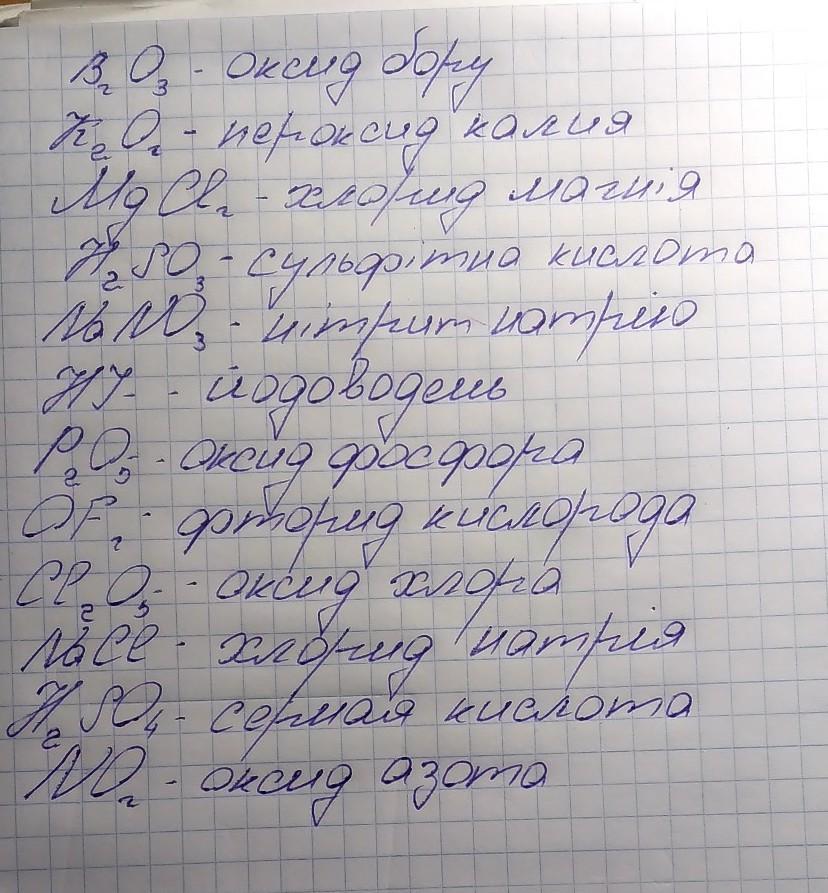 B₂O₃ - оксид бору
K₂O₂ - пероксид калия
MgCl₂ - хлорид магнія
H₂SO₃ - сульфітна кислота
NaNO₃ - нітрит натрію
HJ - йодоводень
P₂O₅ - оксид фосфора
OF₂ - фторид кислорода
Cl₂O₅ - оксид хлора
NaCl - хлорид натрія
H₂SO₄ - серная кислота
NO₂ - оксид азота